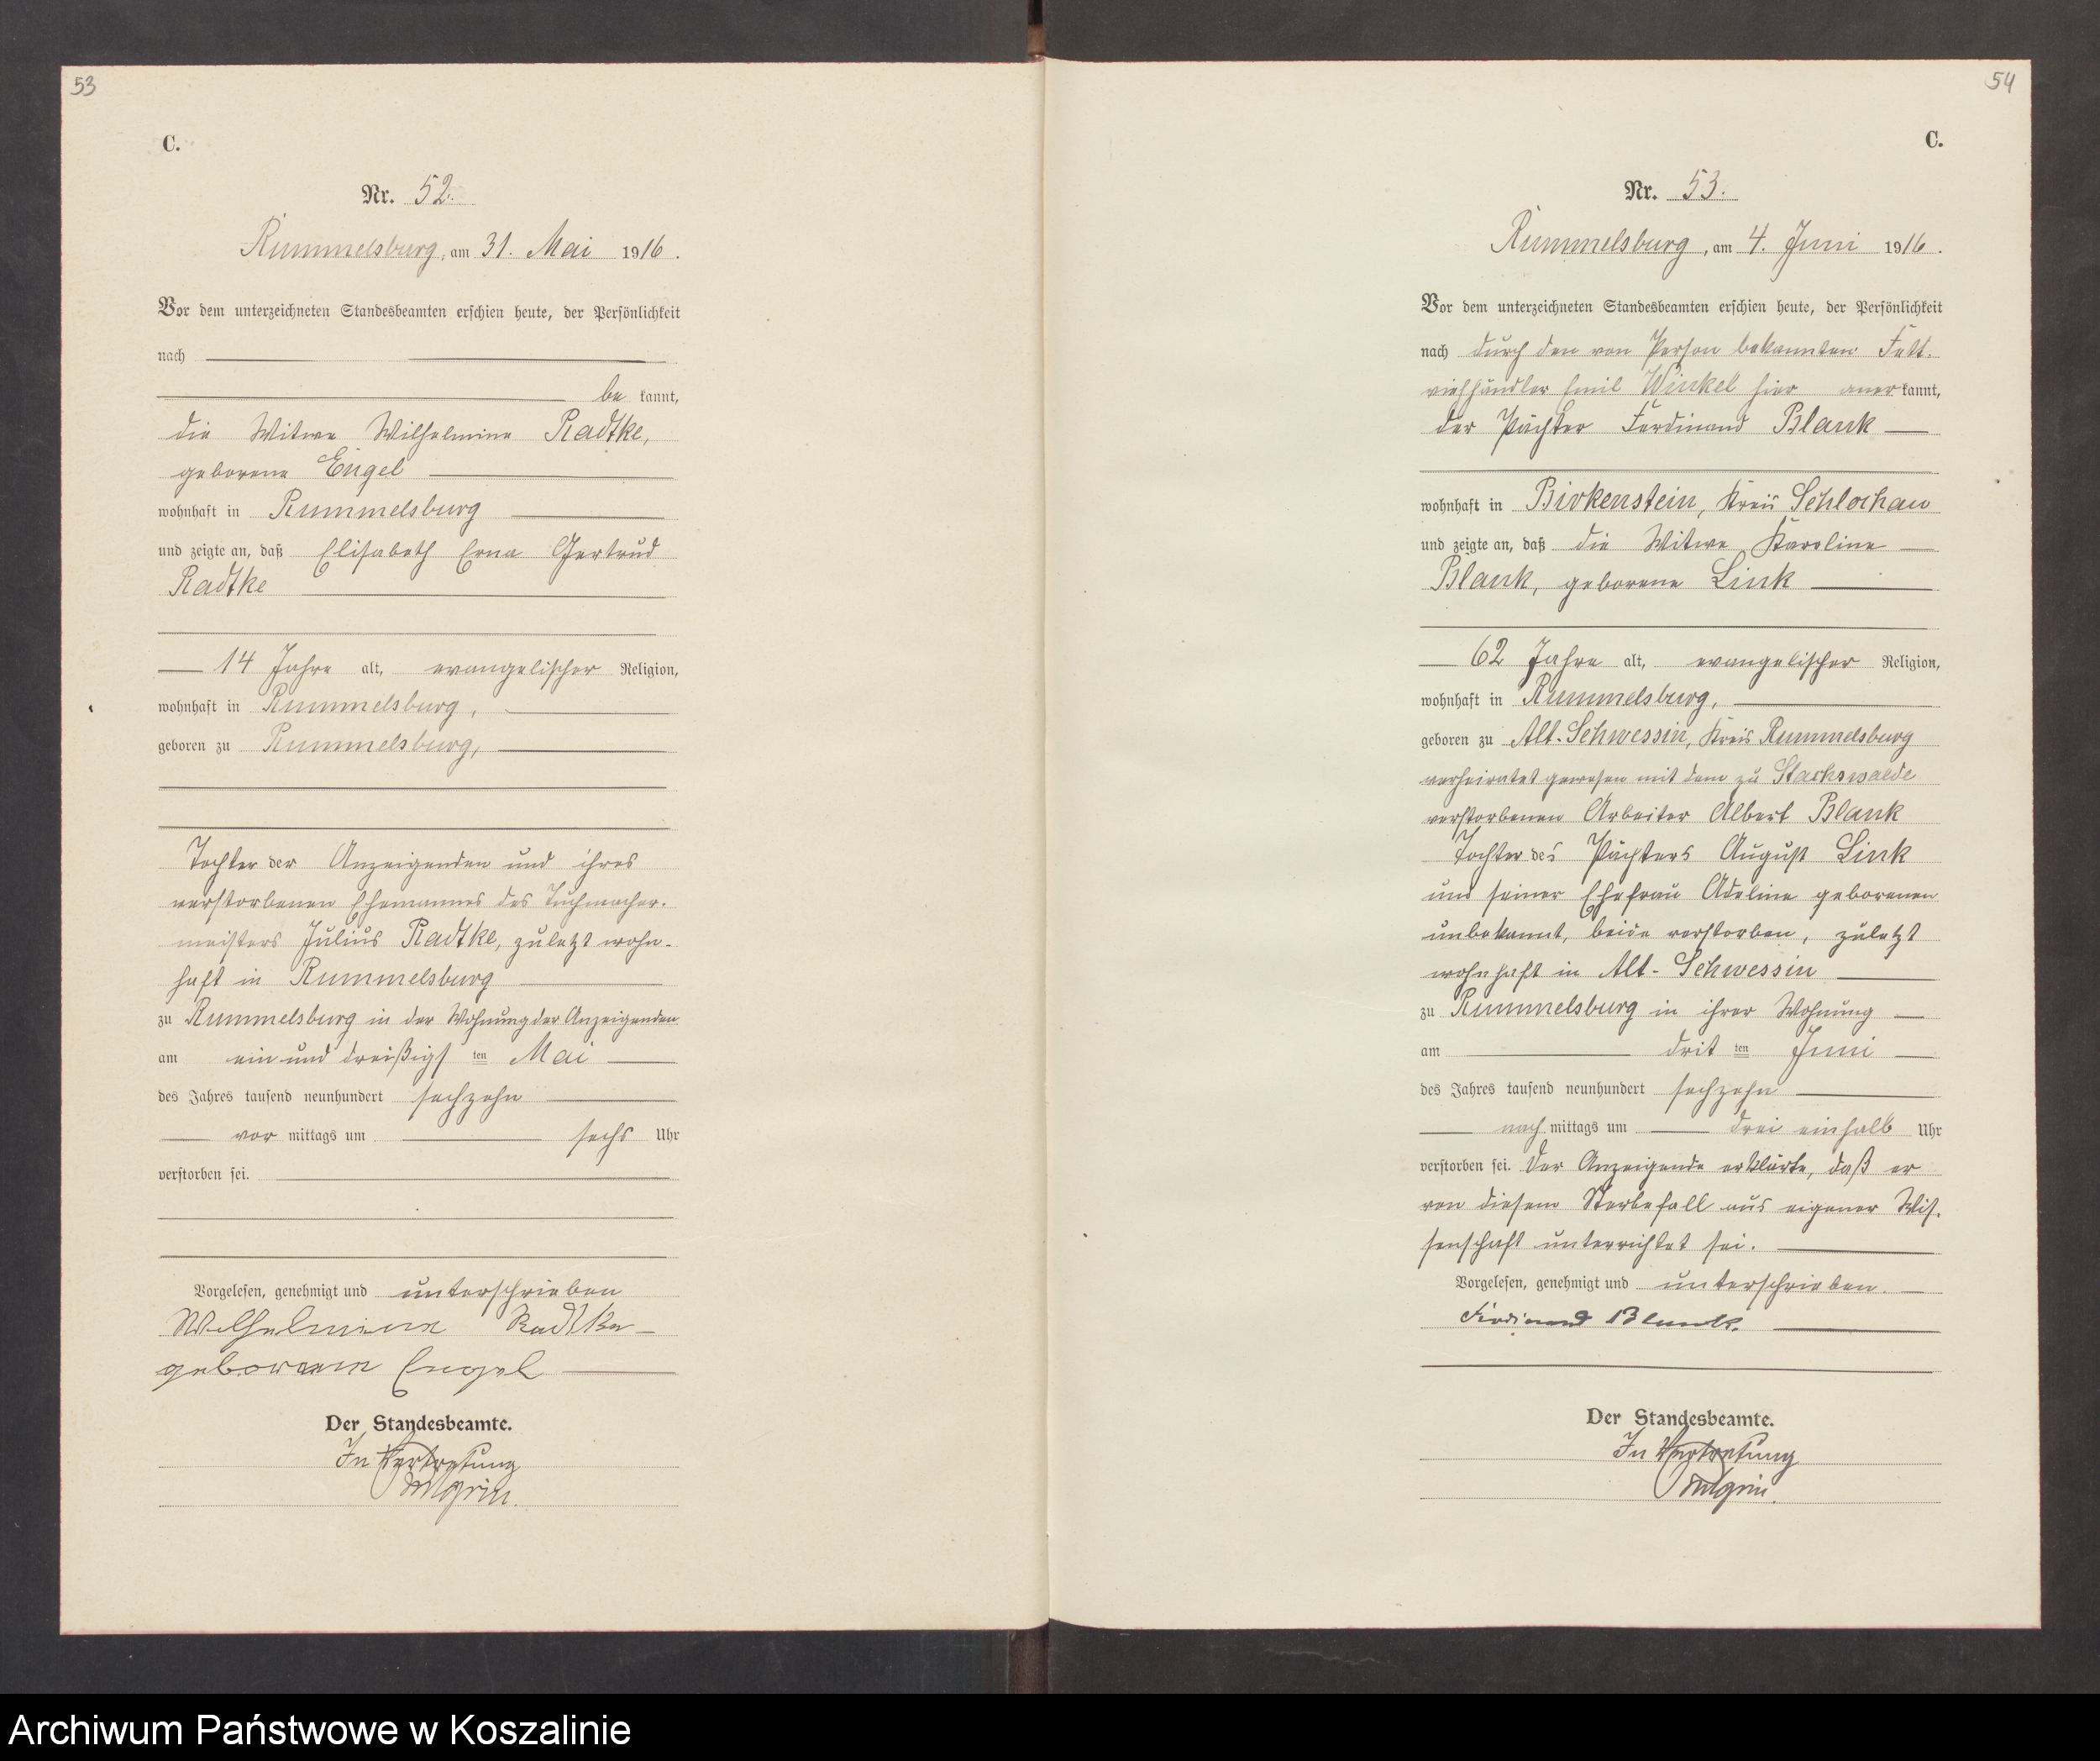 53
C.
Nr. 52.
Rummelsburg, am 31. Mai 1916.
Vor dem unterzeichneten Standesbeamten erschien heute, der Persönlichkeit
nach
be kannt,
die Witwe Wilhelmine Radtke,
geborene Engel
wohnhaft in Rummelsburg
und zeigte an, daß Elisabeth Erna Gertrud
Radtke
14 Jahre alt, evangelischer Religion,
wohnhaft in Rummelsburg,
geboren zu Rummelsburg,
Tochter der Anzeigenden und ihres
verstorbenen Ehemannes des Tuchmacher-
meisters Julius Radtke, zuletzt wohn-
haft in Rummelsburg
zu Rummelsburg in der Wohnung der Anzeigenden
am ein und dreißigs ten Mai
des Jahres tausend neunhundert sechzehn
vor mittags um sechs Uhr
verstorben sei.
Vorgelesen, genehmigt und unterschrieben
Wilhelmine Radtke
geborene Engel
Der Standesbeamte.
In Vertretung
54
C.
Nr. 53.
Rummelsburg, am 4. Juni 1916.
Vor dem unterzeichneten Standesbeamten erschien heute, der Persönlichkeit
nach durch den von Person bekannten Fett-
viehhändler Emil Winkel hier aner kannt,
der Pächter Ferdinand Blank
wohnhaft in Birkenstein, Kreis Schlochau
und zeigte an, daß die Witwe Karoline
Blank, geborene Link
62 Jahre alt, evangelischer Religion,
wohnhaft in Rummelsburg,
geboren zu Alt-Schwessin, Kreis Rummelsburg
verheiratet gewesen mit dem zu Starkswalde
verstorbenen Arbeiter Albert Blank
Tochter des Pächters August Link
und seiner Ehefrau Adeline geborenen
unbekannt, beide verstorben, zuletzt
wohnhaft in Alt-Schwessin
zu Rummelsburg in ihrer Wohnung
am drit ten Juni
des Jahres tausend neunhundert sechzehn
nach mittags um drei einhalb Uhr
verstorben sei. Der Anzeigende erklärte, daß er
von diesem Sterbefall aus eigener Wis-
senschaft unterrichtet sei.
Vorgelesen, genehmigt und unterschrieben.
Ferdinand Blank.
Der Standesbeamte.
In Vertretung
Archiwum Państwowe w Koszalinie